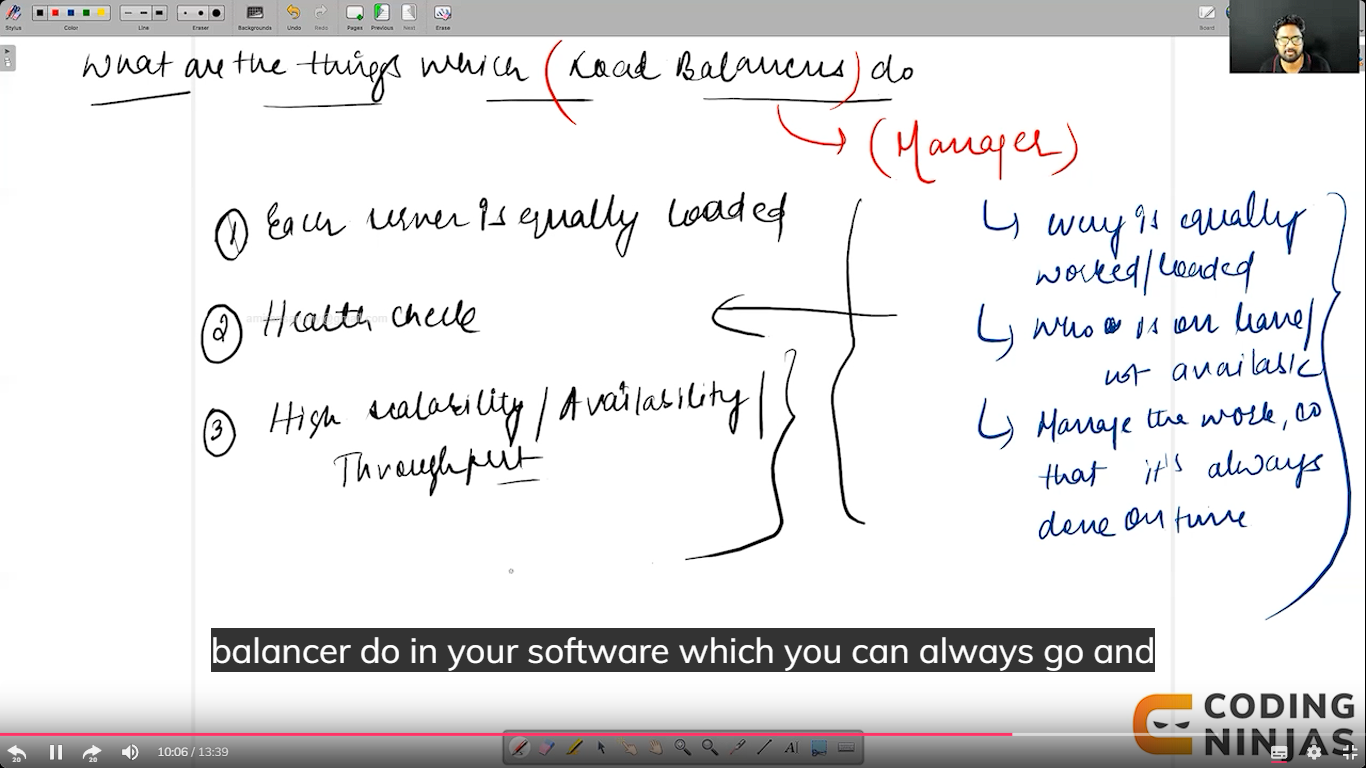 Stylus Color Line Eraser Backgrounds Undo Redo Pages Previous Next Erase Board
What are the things which (Load Balancers) do
(Manager)
1 Each server is equally loaded
2 Health check
3 High scalability / Availability /
Throughput
every is equally
worked/loaded
who is on leave/
not available
Manage the work, so
that it's always
done on time
balancer do in your software which you can always go and
CODING
NINJAS
20 20 10:06 / 13:39